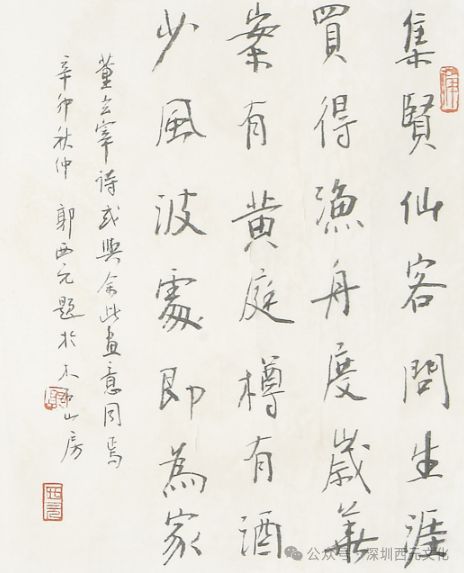 集賢仙客問生涯
買得漁舟度歲華
案有黄庭樽有酒
少風波處即為家
董玄宰詩或與余此畫意同焉
辛卯秋仲 郭西元題於不山房
公众号·深圳西元文化